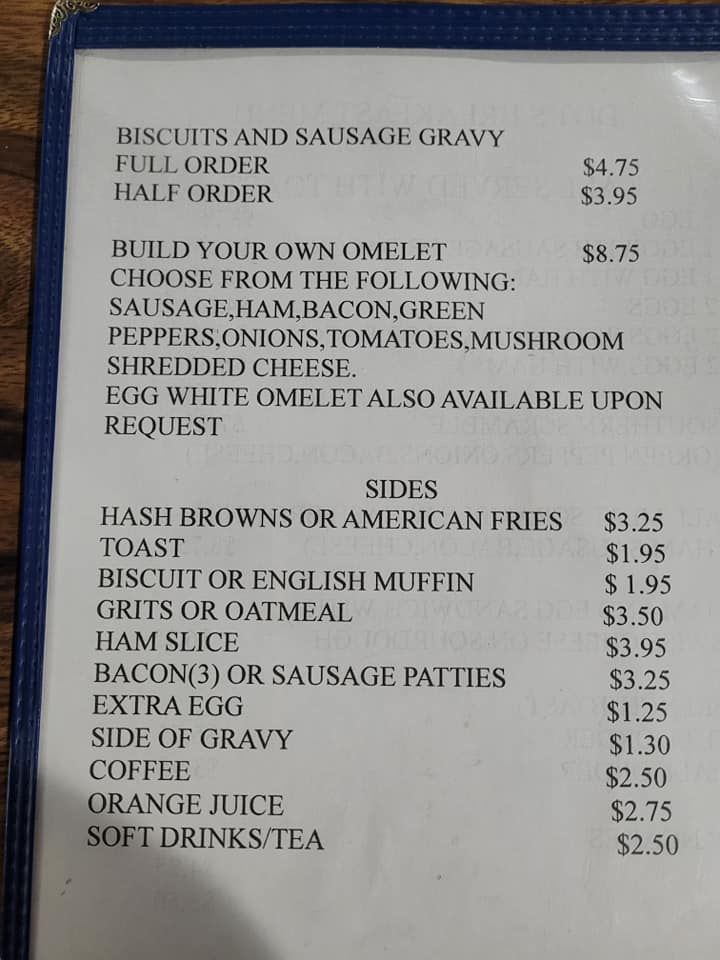 BISCUITS AND SAUSAGE GRAVY
FULL ORDER $4.75
HALF ORDER $3.95
BUILD YOUR OWN OMELET $8.75
CHOOSE FROM THE FOLLOWING:
SAUSAGE,HAM,BACON,GREEN
PEPPERS,ONIONS,TOMATOES,MUSHROOM
SHREDDED CHEESE.
EGG WHITE OMELET ALSO AVAILABLE UPON
REQUEST
SIDES
HASH BROWNS OR AMERICAN FRIES $3.25
TOAST $1.95
BISCUIT OR ENGLISH MUFFIN $ 1.95
GRITS OR OATMEAL $3.50
HAM SLICE $3.95
BACON(3) OR SAUSAGE PATTIES $3.25
EXTRA EGG $1.25
SIDE OF GRAVY $1.30
COFFEE $2.50
ORANGE JUICE $2.75
SOFT DRINKS/TEA $2.50